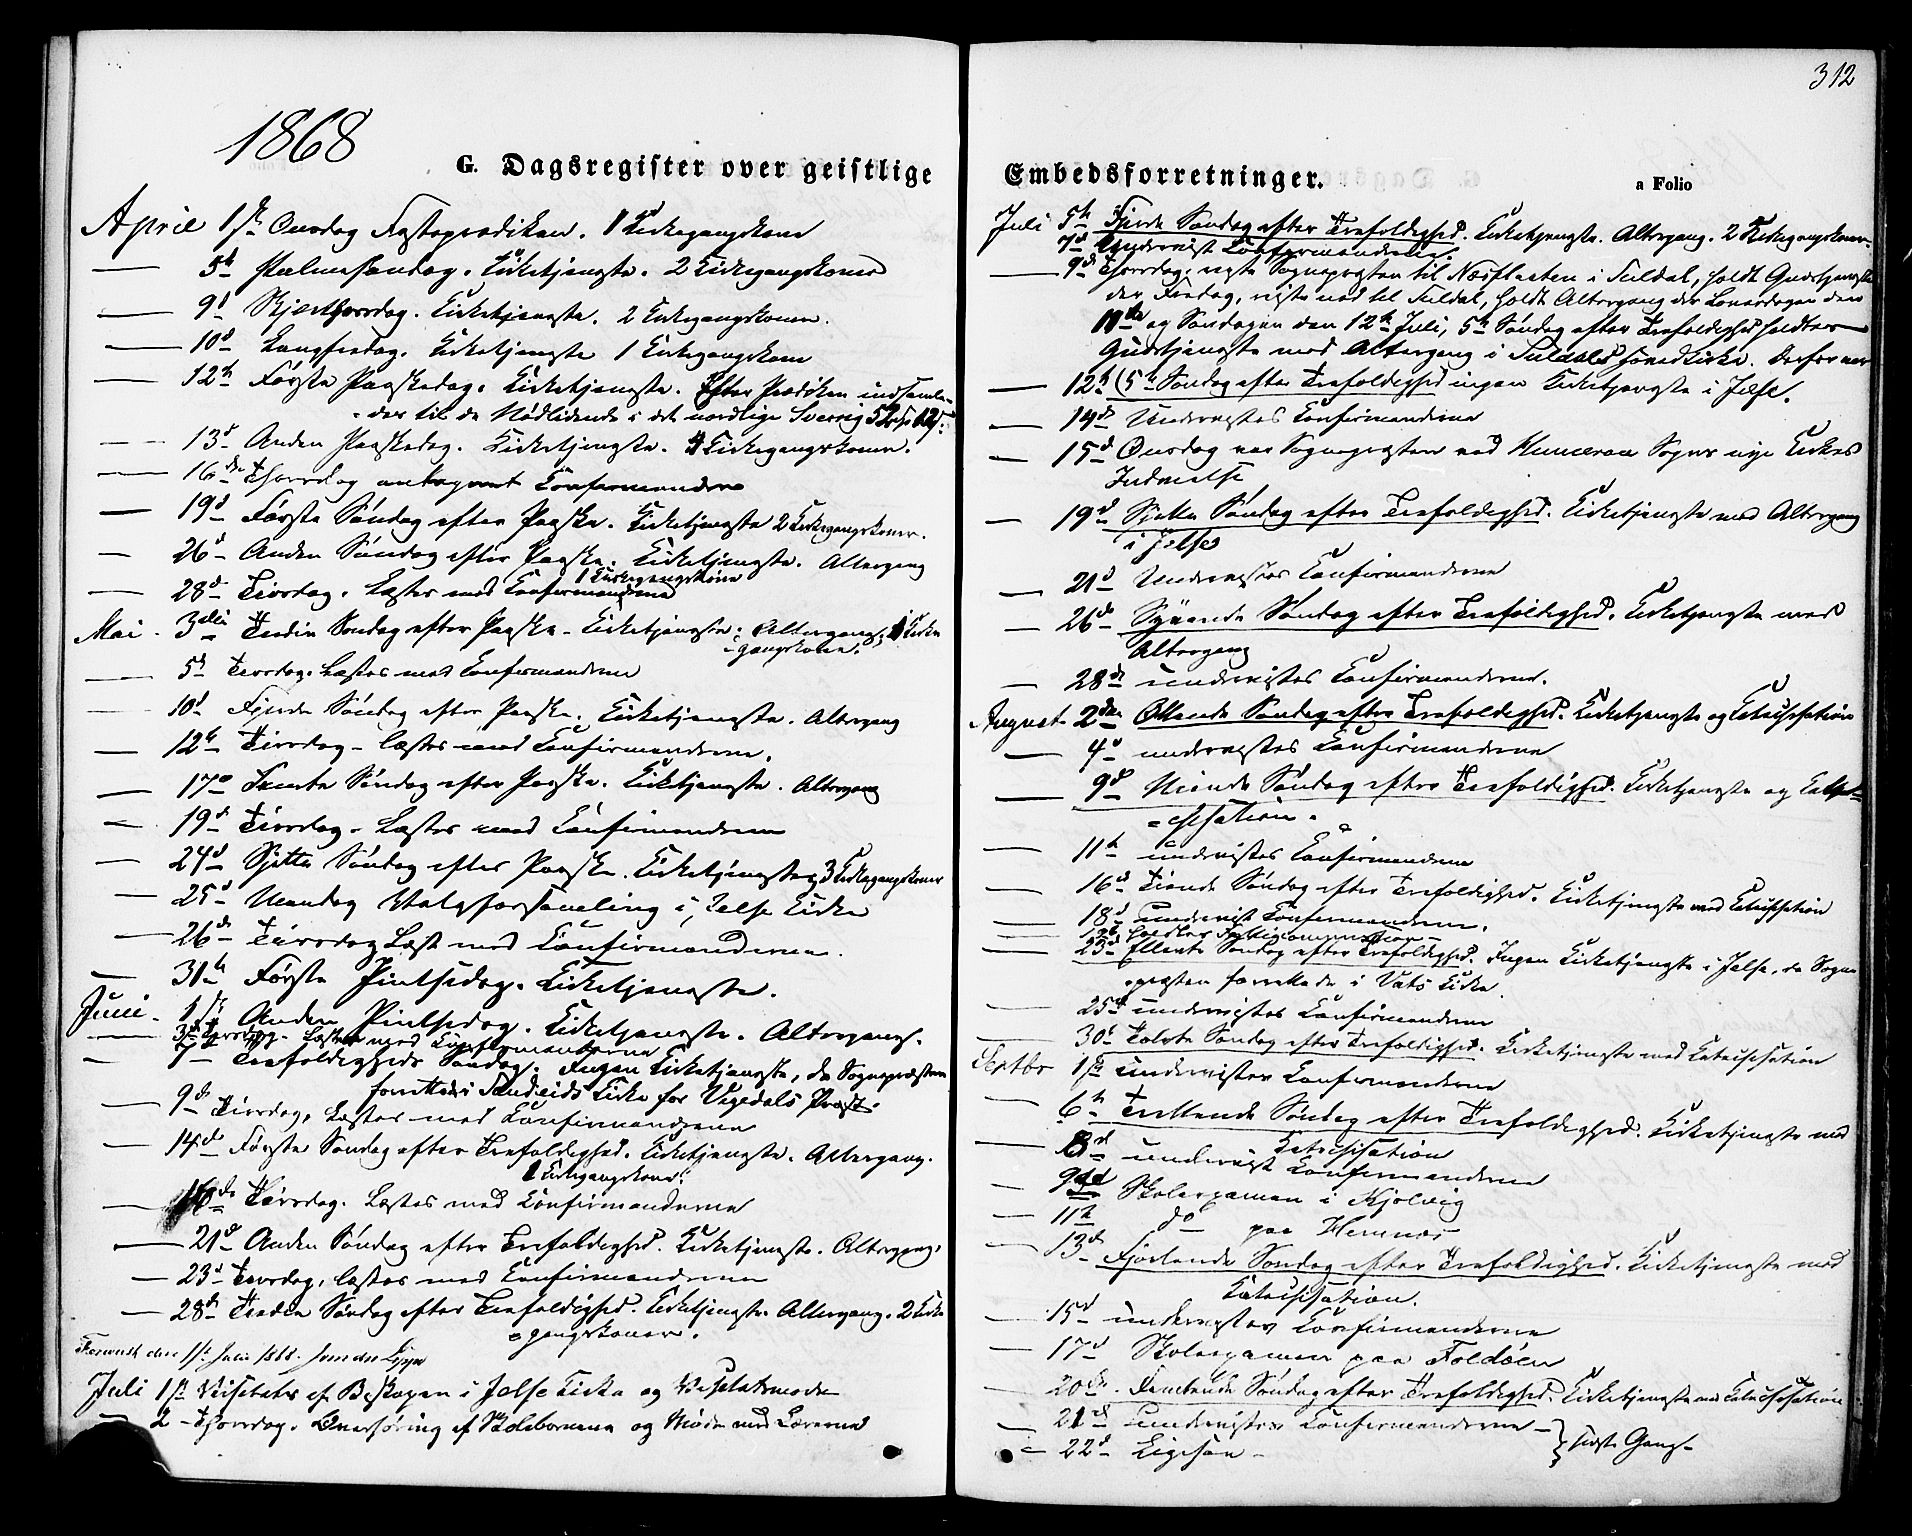 1868
G. Dagsregister over geistlige
April 1ste Onsdag Fasteprædiken. 1 Kirkegangskone
5te Palmesøndag. Kirketjeneste. 2 Kirkegangskoner
9de Skjærthorsdag. Kirketjeneste. 2 Kirkegangskoner.
10de Langfredag. Kirketjeneste 1 Kirkegangskone
12te Første Paaskedag. Kirketjeneste. Efter Prædiken indsamle-
des til de Nødlidende i det nordlige Sverrig
13de Anden Paaskedag. Kirketjeneste. 4 Kirkegangskoner.
16de Thorsdag antegnet Confirmanderne
19de Første Søndag efter Paaske. Kirketjeneste 2 Kirkegangskoner.
26de Anden Søndag efter Paaske. Kirketjeneste. Altergang
1 Kirkegangskone
28de Tirsdag. Læstes med Confirmanderne
Mai. 3die Tredie Søndag efter Paaske. Kirketjeneste. Altergang. 1 Kirke
gangskone.
5te Tirsdag. Læstes med Confirmanderne
10de Fjerde Søndag efter Paaske. Kirketjeneste. Altergang
12te Tirsdag. læstes med Confirmanderne.
17de Femte Søndag efter Paaske. Kirketjeneste. Altergang
19de Tirsdag. Læstes med Confirmanderne
24de Sjette Søndag efter Paaske. Kirketjeneste 3 Kirkegangskoner
25de Mandag Valgforsamling i Jelse Kirke
26de Tirsdag Læst med Confirmanderne.
31te Første Pintsedag. Kirketjeneste.
Juni. 1ste Anden Pintsedag. Kirketjeneste. Altergang.
3de Læstes med Confirmanderne
7de Trefoldigheds Søndag. Ingen Kirketjeneste, da Sognepræsten
forrettede i Sandeids Kirke for Vigedals Præst.
9de Tirsdag, Læstes med Confirmanderne
14de Første Søndag efter Trefoldighed. Kirketjeneste. Altergang.
1 Kirkegangskone.
16de Tirsdag. Læstes med Confirmanderne
21de Anden Søndag efter Trefoldighed. Kirketjeneste. Altergang.
23de Tirsdag, læstes med Confirmanderne
28de Tredie Søndag efter Trefoldighed. Kirketjeneste Altergang. 2 Kirke
gangskoner.
den 1ste Juli 1868.
Juli 1ste Visitats af Biskopen i Jelse Kirke og Visitatsmøde
2 - Thorsdag. Overhøring af Skolebørnene og Møde med Lærerne
312
Embedsforretninger.
a Folio
Juli 5te Fjerde Søndag efter Trefoldighed. Kirketjeneste. Altergang. 2 Kirkegangskoner.
7de Undervist Confirmanderne.
9de Thorsdag, reiste Sognepræsten til Næsflaten i Suldal, holdt Gudstjeneste
der Fredag, reiste ned til Suldal, holdt Altergang der Løverdagen den
11te og Søndagen den 12te Juli, 5te Søndag efter Trefoldighed holdtes
Gudstjeneste med Altergang i Suldals Hovedkirke. Derfor var
12te (5te Søndag efter Trefoldighed ingen Kirketjeneste i Jelse.
14de Undervistes Confirmanderne
15de Onsdag var Sognepræsten ved Sogns nye Kirkes
Indvielse
19de Sjette Søndag efter Trefoldighed. Kirketjeneste med Altergang
i Jelse
21de Undervistes Confirmanderne
26de Syvende Søndag efter Trefoldighed. Kirketjeneste med
Altergang
28de undervistes Confirmanderne.
August 2den Ottende Søndag efter Trefoldighed. Kirketjeneste og Catechisation
4de undervistes Confirmanderne
9de Niende Søndag efter Trefoldighed. Kirketjeneste og Catechisation.
11te undervistes Confirmanderne
16de Tiende Søndag efter Trefoldighed. Kirketjeneste med Catechisation
18de undervist Confirmanderne.
19de holdtes Fattigcommission
23de Ellevte Søndag efter Trefoldighed. Ingen Kirketjeneste i Jelse, da Sogne
præsten forrettede i Vats Kirke
25de undervistes Confirmanderne
30te Tolvte Søndag efter Trefoldighed. Kirketjeneste med Catechisation
Septbr 1ste undervistes Confirmanderne
6te Trettende Søndag efter Trefoldighed. Kirketjeneste med
Catechisation
8de undervist Confirmanderne
9de Skoleexamen i Kjølvig
11te do paa Hemnæs
13de Fjortende Søndag efter Trefoldighed. Kirketjeneste med
Katechisation.
15de undervistes Confirmanderne
17de Skoleexamen paa Foldøen
20de Femtende Søndag efter Trefoldighed. Kirketjeneste med Catechisation
21de undervistes Confirmanderne } sidste Gang
22de Ligesaa